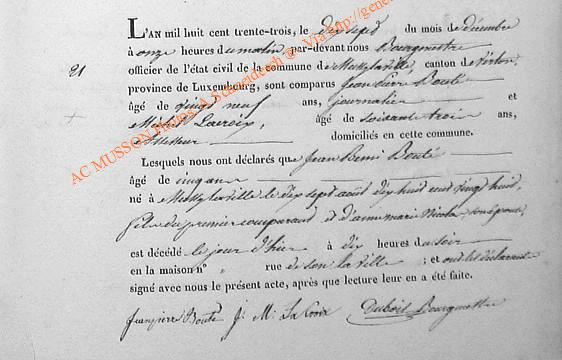 L'AN mil huit cent trente-trois, le dix sept du mois de décembre
à onze heures du matin, par-devant nous Bourgmestre
21 officier de l'état civil de la commune de ville, canton de Virton,
province de Luxembourg, sont comparus Jean Pierre Bouté
âgé de vingt neuf ans, journalier et
+ Michel Lacroix, âgé de soixante trois ans,
domiciliés en cette commune.
Lesquels nous ont déclarés que Jean Remi Bouté
âgé de cinq ans
né à ville le dix sept août dix huit cent vingt huit,
fils du premier comparant et d'anne marie Nicolas son épouse,
est décédé le jour d'hier à dix heures du soir
en la maison n° rue de son la ville ; et ont les déclarants
signé avec nous le présent acte, après que lecture leur en a été faite.
Jeanpierre Bouté J. M. La Croix Dubois Bourgmestre
AC MUSSON Photos A Schneideesch @ Via http://gene